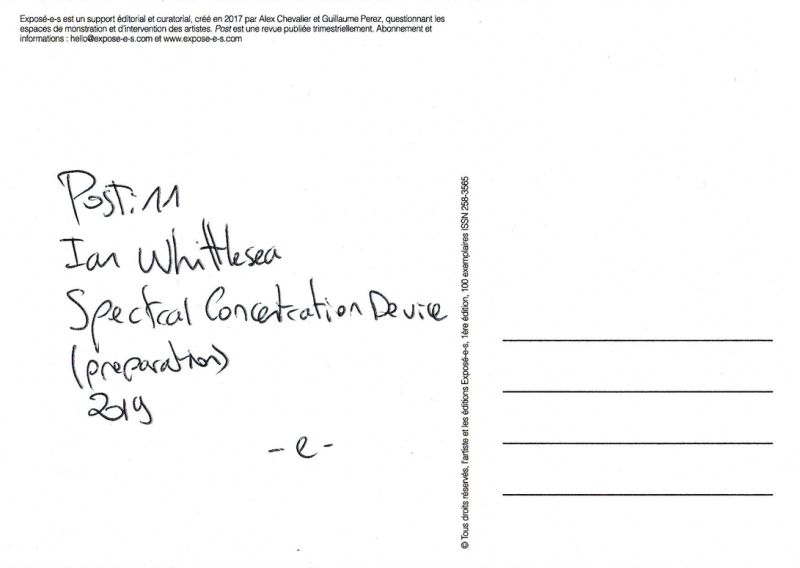 Exposé-e-s est un support éditorial et curatorial, créé en 2017 par Alex Chevalier et Guillaume Perez, questionnant les
espaces de monstration et d'intervention des artistes. Post est une revue publiée trimestriellement. Abonnement et
informations : hello@expose-e-s.com et www.expose-e-s.com
Post:11
Ian Whittlesea
Spectral Concentration Device
(preparation)
2019
-e-
© Tous droits réservés, l'artiste et les éditions Exposé-e-s, 1ère édition, 100 exemplaires ISSN 258-3565